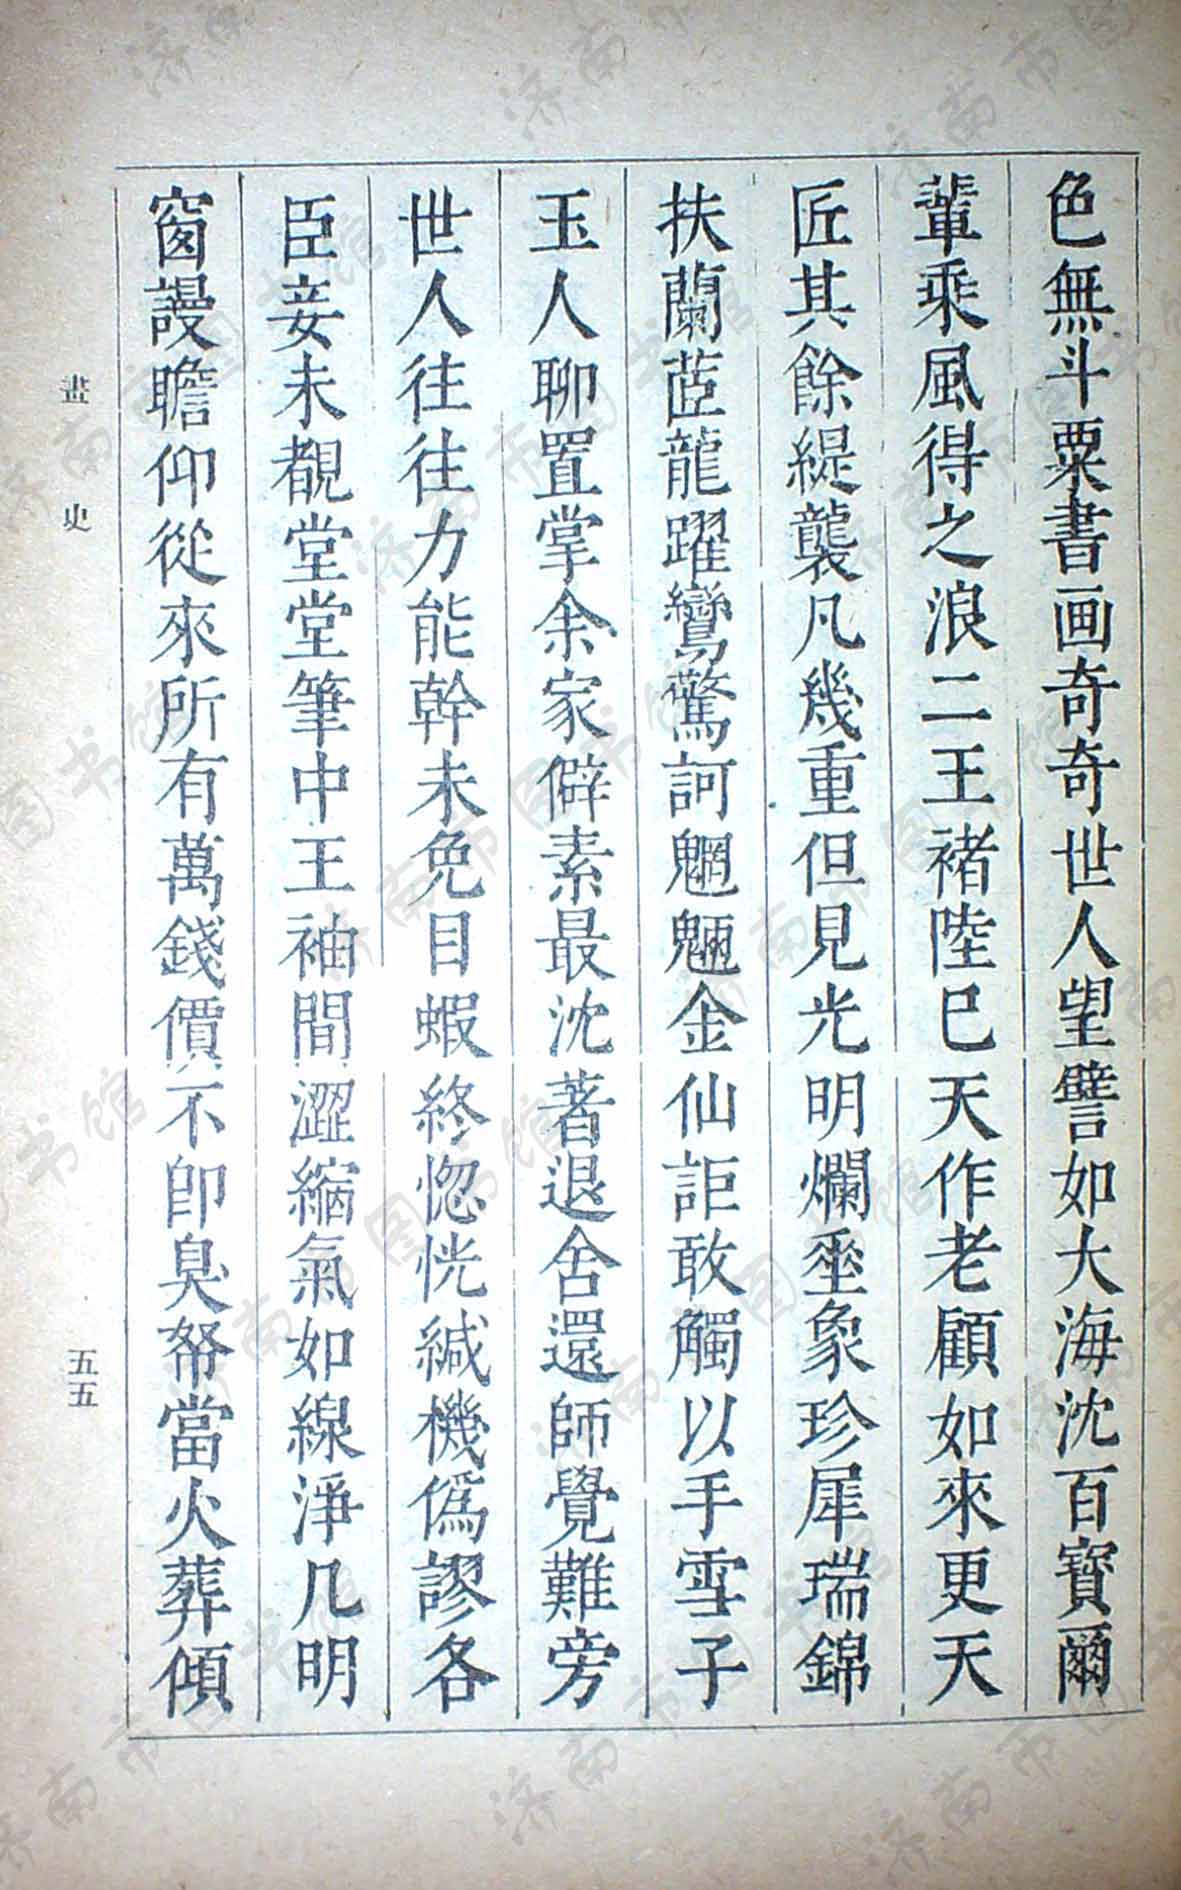 色無斗粟書画奇奇世人望譬如大海沈百寶爾
輩乘風得之浪二王褚陸已天作老顧如來更天
匠其餘緹襲凡幾重但見光明爛埀象珍犀瑞錦
扶蘭茝龍躍鸞驚訶魍魎金仙詎敢觸以手雪子
玉人聊置掌余家僻素最沈著退舍還師覺難旁
世人往往力能幹未免目蝦終惚恍緘機僞謬各
臣妾未覩堂堂筆中王袖間澀縮氣如線淨几明
窗謾瞻仰從來所有萬錢價不卽臭帑當火葬傾
畫史
五五
济南市图书馆